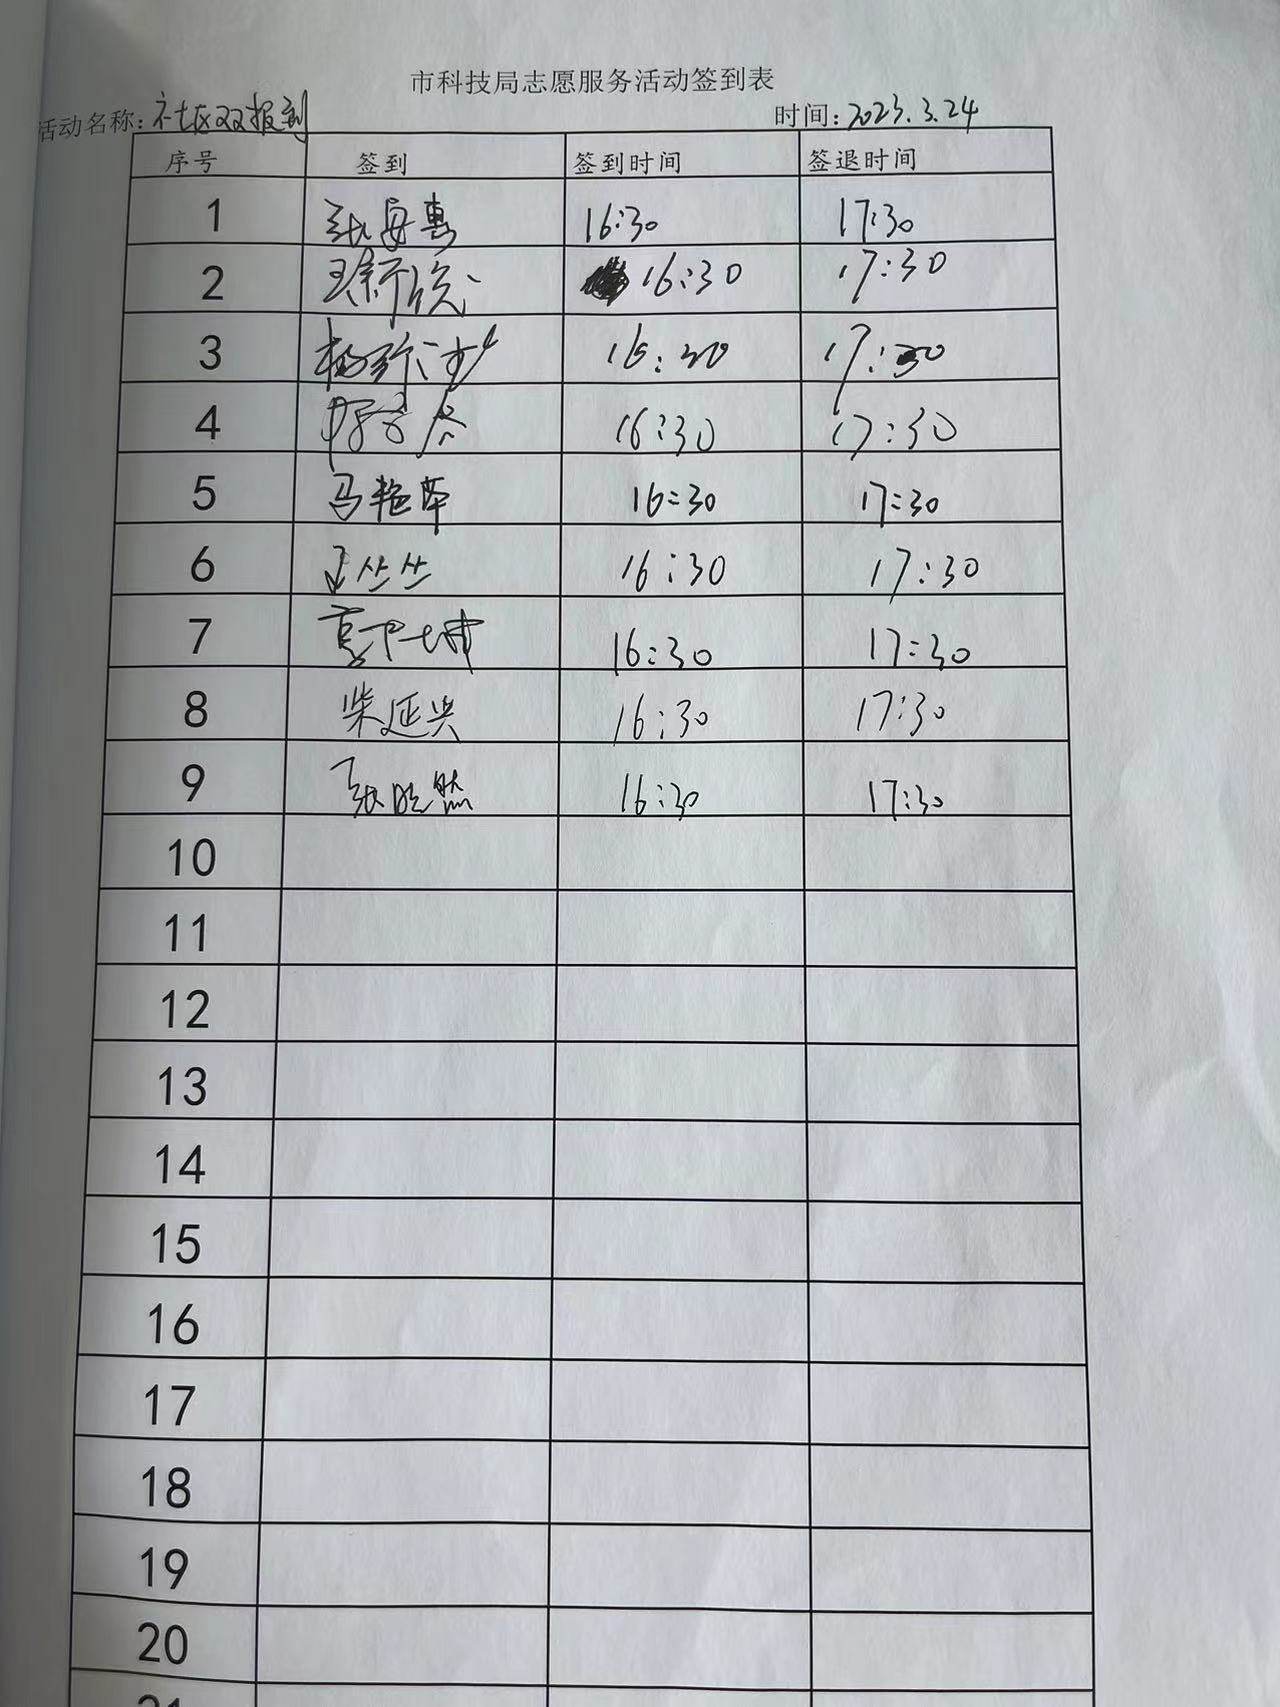 市科技局志愿服务活动签到表
活动名称：社区双报到 时间：2023.3.24
序号 签到 签到时间 签退时间
1 张海惠 16:30 17:30
2 16:30 17:30
3 16:30 17:30
4 16:30 17:30
5 马艳苹 16:30 17:30
6 王丛丛 16:30 17:30
7 16:30 17:30
8 柴延兴 16:30 17:30
9 张晓燃 16:30 17:30
10
11
12
13
14
15
16
17
18
19
20
21